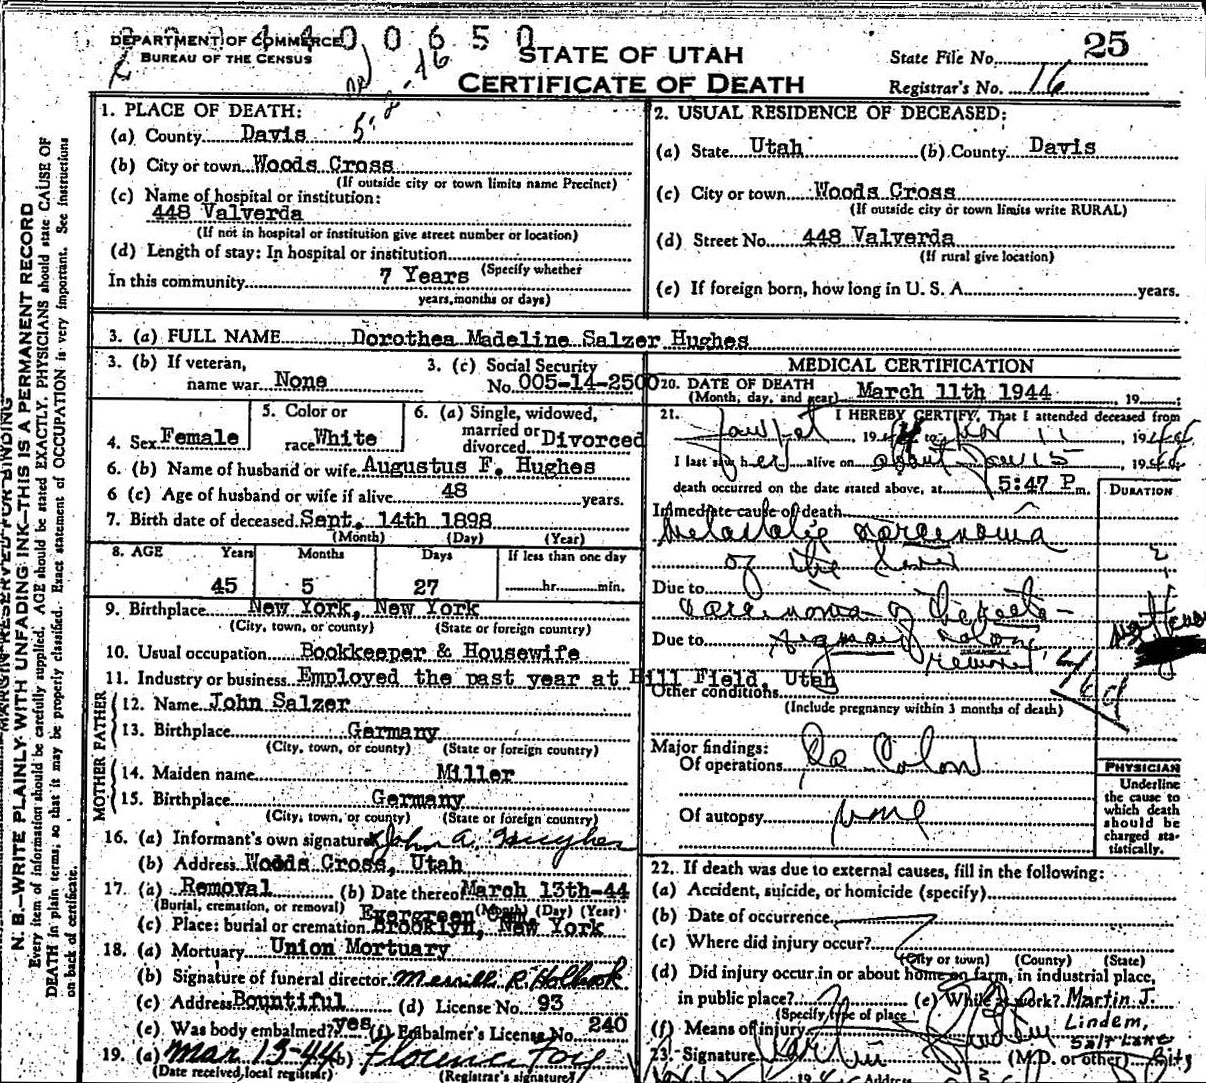 DEPARTMENT OF COMMERCE
BUREAU OF THE CENSUS
00650
STATE OF UTAH
CERTIFICATE OF DEATH
State File No. 25
Registrar's No. 16
MARGIN RESERVED FOR BINDING
N. B.—WRITE PLAINLY WITH UNFADING INK—THIS IS A PERMANENT RECORD
Every item of information should be carefully supplied. AGE should be stated EXACTLY. PHYSICIANS should state CAUSE OF
DEATH in plain terms, so that it may be properly classified. Exact statement of OCCUPATION is very important. See instructions
on back of certificate.
1. PLACE OF DEATH:
(a) County Davis
(b) City or town Woods Cross
(If outside city or town limits name Precinct)
(c) Name of hospital or institution:
448 Valverda
(If not in hospital or institution give street number or location)
(d) Length of stay: In hospital or institution
(Specify whether
In this community 7 Years
years, months or days)
2. USUAL RESIDENCE OF DECEASED:
(a) State Utah (b) County Davis
(c) City or town Woods Cross
(If outside city or town limits write RURAL)
(d) Street No. 448 Valverda
(If rural give location)
(e) If foreign born, how long in U. S. A. years.
3. (a) FULL NAME Dorothea Madeline Salzer Hughes
3. (b) If veteran,
name war None
3. (c) Social Security
No. 005-14-2500
4. Sex Female
5. Color or
race White
6. (a) Single, widowed,
married or
divorced Divorced
6. (b) Name of husband or wife Augustus F. Hughes
6 (c) Age of husband or wife if alive 48 years.
7. Birth date of deceased Sept. 14th 1898
(Month) (Day) (Year)
8. AGE Years Months Days If less than one day
45 5 27 hr. min.
9. Birthplace New York, New York
(City, town, or county) (State or foreign country)
10. Usual occupation Bookkeeper & Housewife
11. Industry or business Employed the past year at Hill Field, Utah
FATHER
12. Name John Salzer
13. Birthplace Germany
(City, town, or county) (State or foreign country)
MOTHER
14. Maiden name Miller
15. Birthplace Germany
(City, town, or county) (State or foreign country)
16. (a) Informant's own signature x John A. Hughes
(b) Address Woods Cross, Utah
17. (a) Removal (b) Date thereof March 13th-44
(Burial, cremation, or removal) (Month) (Day) (Year)
Evergreen Cem.
(c) Place: burial or cremation Brooklyn, New York
18. (a) Mortuary Union Mortuary
(b) Signature of funeral director Merrill R. Holbrook
(c) Address Bountiful (d) License No. 93
(e) Was body embalmed? yes (f) Embalmer's License No. 240
19. (a) Mar 13-44 (b) Florence Foy
(Date received local registrar) (Registrar's signature)
MEDICAL CERTIFICATION
20. DATE OF DEATH March 11th 1944, 19
(Month, day, and year)
21. I HEREBY CERTIFY, That I attended deceased from
1944 to 11 1944
I last saw her alive on about Jan 15 1944
death occurred on the date stated above, at 5:47 P m.
DURATION
Immediate cause of death
Metastatic carcinoma
of the liver
Due to
carcinoma of
Due to sigmoid colon
removed
Other conditions
(Include pregnancy within 3 months of death)
Major findings:
Of operations Ca Colon
Of autopsy none
PHYSICIAN
Underline
the cause to
which death
should be
charged sta-
tistically.
22. If death was due to external causes, fill in the following:
(a) Accident, suicide, or homicide (specify)
(b) Date of occurrence
(c) Where did injury occur?
(City or town) (County) (State)
(d) Did injury occur in or about home on farm, in industrial place,
in public place? (e) While at work?
(Specify type of place
(f) Means of injury
Martin J.
Lindem,
Salt Lake
City
23. Signature (M.D. or other)
Address